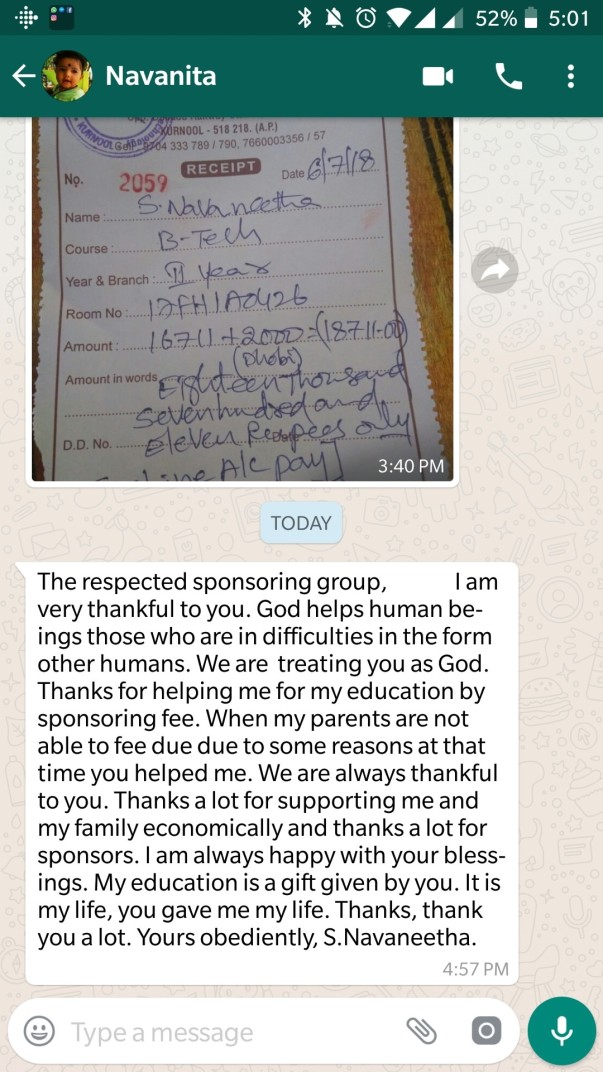 52% 5:01
Navanita
KURNOOL - 518 218. (A.P.)
333 789 / 790, 7660003356 / 57
RECEIPT
No. 2059
Date 6/7/18
Name : S. Navaneetha
Course : B-Tech
Year & Branch : II Year
Room No : 17FH1A0426
Amount : 16711 + 2000 = (18711-00)
(Dhobi)
Amount in words Eighteen thousand
Seven hundred and
D.D. No. Eleven Rupees only
A/c pay
3:40 PM
TODAY
The respected sponsoring group, I am
very thankful to you. God helps human be-
ings those who are in difficulties in the form
other humans. We are treating you as God.
Thanks for helping me for my education by
sponsoring fee. When my parents are not
able to fee due due to some reasons at that
time you helped me. We are always thankful
to you. Thanks a lot for supporting me and
my family economically and thanks a lot for
sponsors. I am always happy with your bless-
ings. My education is a gift given by you. It is
my life, you gave me my life. Thanks, thank
you a lot. Yours obediently, S.Navaneetha.
4:57 PM
Type a message